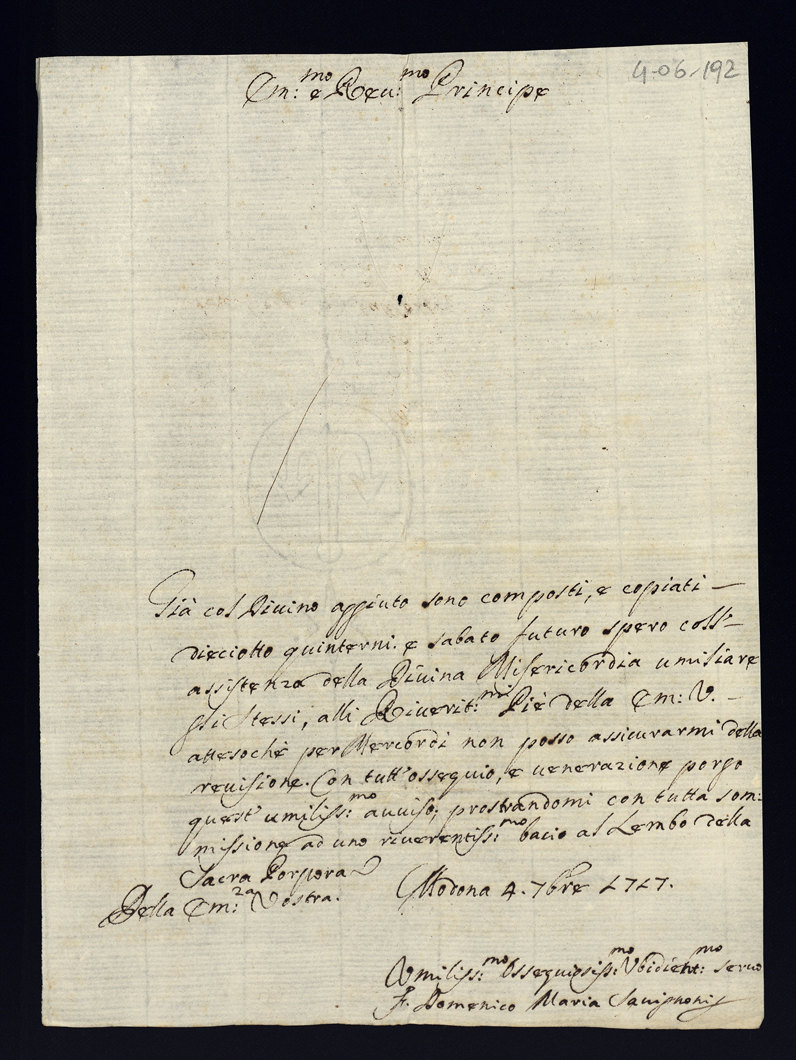 4-06-192
Em:mo e Reu:mo Principe
Già col Diuino aggiuto sono composti, e copiati
dieciotto quinterni. e sabato futuro spero coll'
assistenza della Diuina Misericordia umiliare
gli stessi, alli Riuerit:mi Piè della Em: V.
attesoche per Mercordi non posso assicurarmi della
reuisione. Con tutt'ossequio, e uenerazione porgo
quest' umiliss:mo auuiso; prostrandomi con tutta som:
missione ad uno riuerentiss:mo bacio al Lembo della
Sacra Porpora
Della Em:za Vostra.
Modona 4. 7bre 1717.
Vmiliss:mo Ossequiosiss:mo Vbidient:mo seruo
F. Domenico Maria Sauignoni